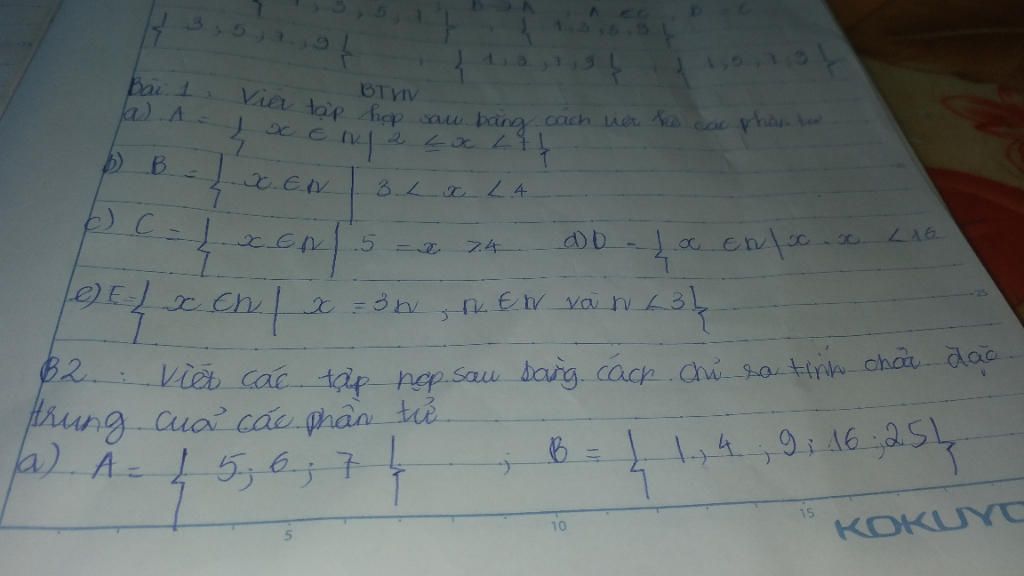 1, 3, 5, 7 } ; B ⊃ A ; A ⊂ C ; B = C
{ 3 ; 5 ; 7 ; 9 } , { 1, 3, 5, 9 }
{ 1, 3, 7, 9 } , { 1, 5, 7, 9 }
BTVN
Bài 1 : Viết tập hợp sau bằng cách các phần tử
a) A = { x ∈ N | 2 ≤ x < 7 }
b) B = { x ∈ N | 3 < x < 4
c) C = { x ∈ N | 5 = x > 4 d) D = { x ∈ N | x . x < 16
e) E = { x ∈ N | x = 3n , n ∈ N và n < 3 }
B2 : Viết các tập hợp sau bằng cách chỉ ra tính chất đặc
trưng cuả các phần tử
a) A = { 5 ; 6 ; 7 } ; B = { 1 , 4 ; 9 ; 16 ; 25 }
5 10 15 KOKUYO